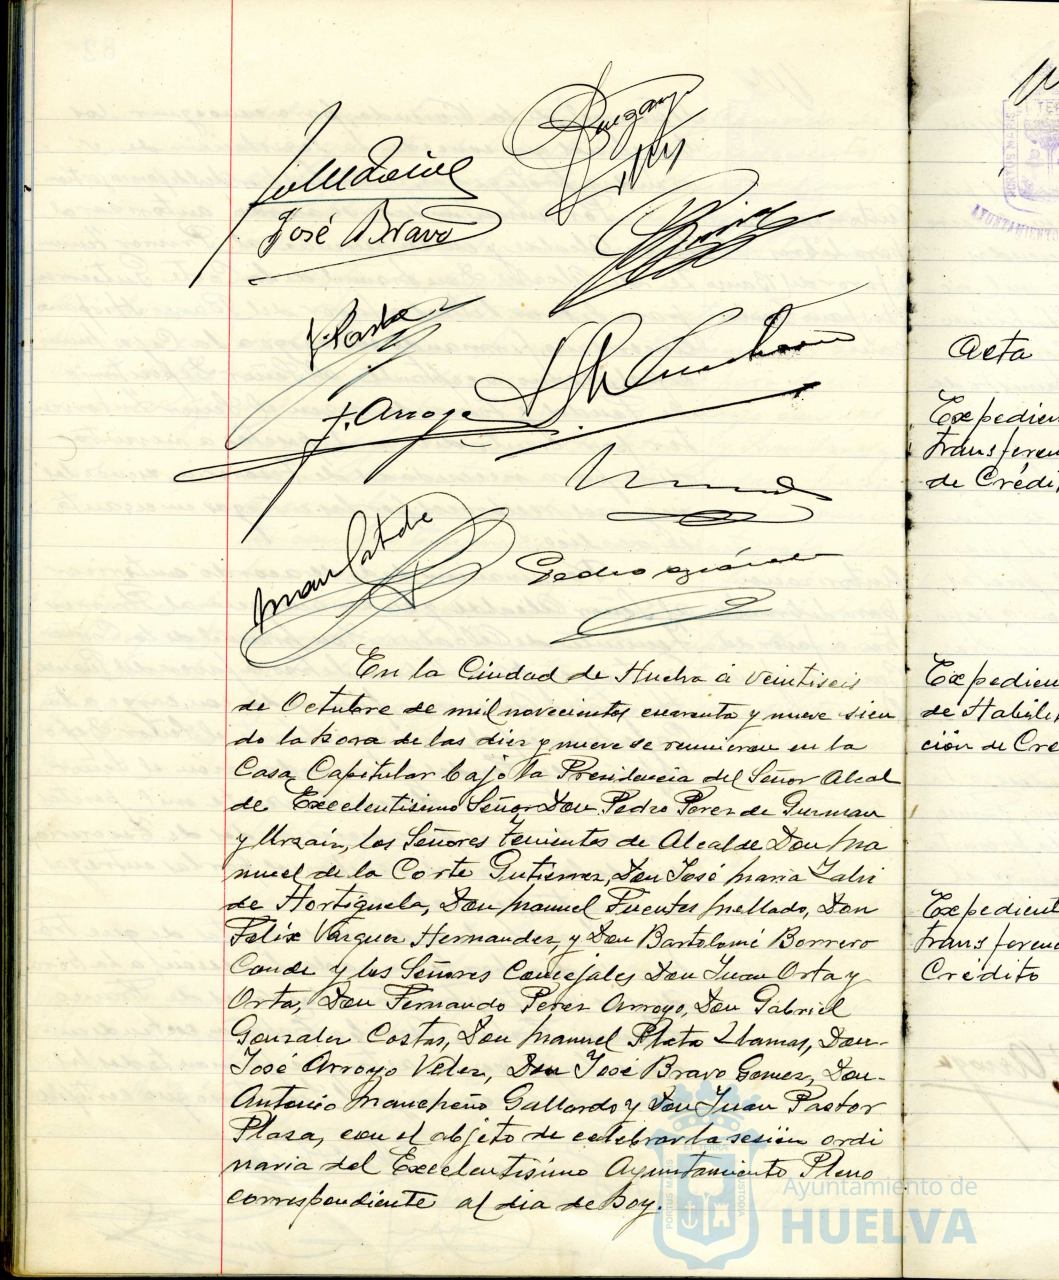 José Bravo
J. Pastor
J. Arroyo
En la Ciudad de Huelva á veintiseis
de Octubre de mil novecientos cuarenta y nueve sien
do la hora de las diez y nueve se reunieron en la
Casa Capitular bajo la Presidencia del Señor Alcal
de Excelentisimo Señor Don Pedro Perez de Guzman
y Urzaiz, los Señores Tenientes de Alcalde Don Ma
nuel de la Corte Gutierrez, Don José Maria Zalvi
de Hortiguela, Don Manuel Fuentes Mellado, Don
Felix Vazquez Hernandez, y Don Bartolomé Borrero
Conde y los Señores Concejales Don Juan Orta y
Orta, Don Fernando Perez Arroyo, Don Gabriel
Gonzalez Costas, Don Manuel Plata Llamas, Don
José Arroyo Velez, Don José Bravo Gomez, Don
Antonio Mancheño Gallardo y Don Juan Pastor
Plaza, con el objeto de celebrar la sesión ordi
naria del Excelentisimo Ayuntamiento Pleno
correspondiente al dia de hoy.
Acta
Expedien
transferen
de Crédi
Expedien
de Habili
ción de Cre
Expedient
transferenc
Crédito
Ayuntamiento de
HUELVA